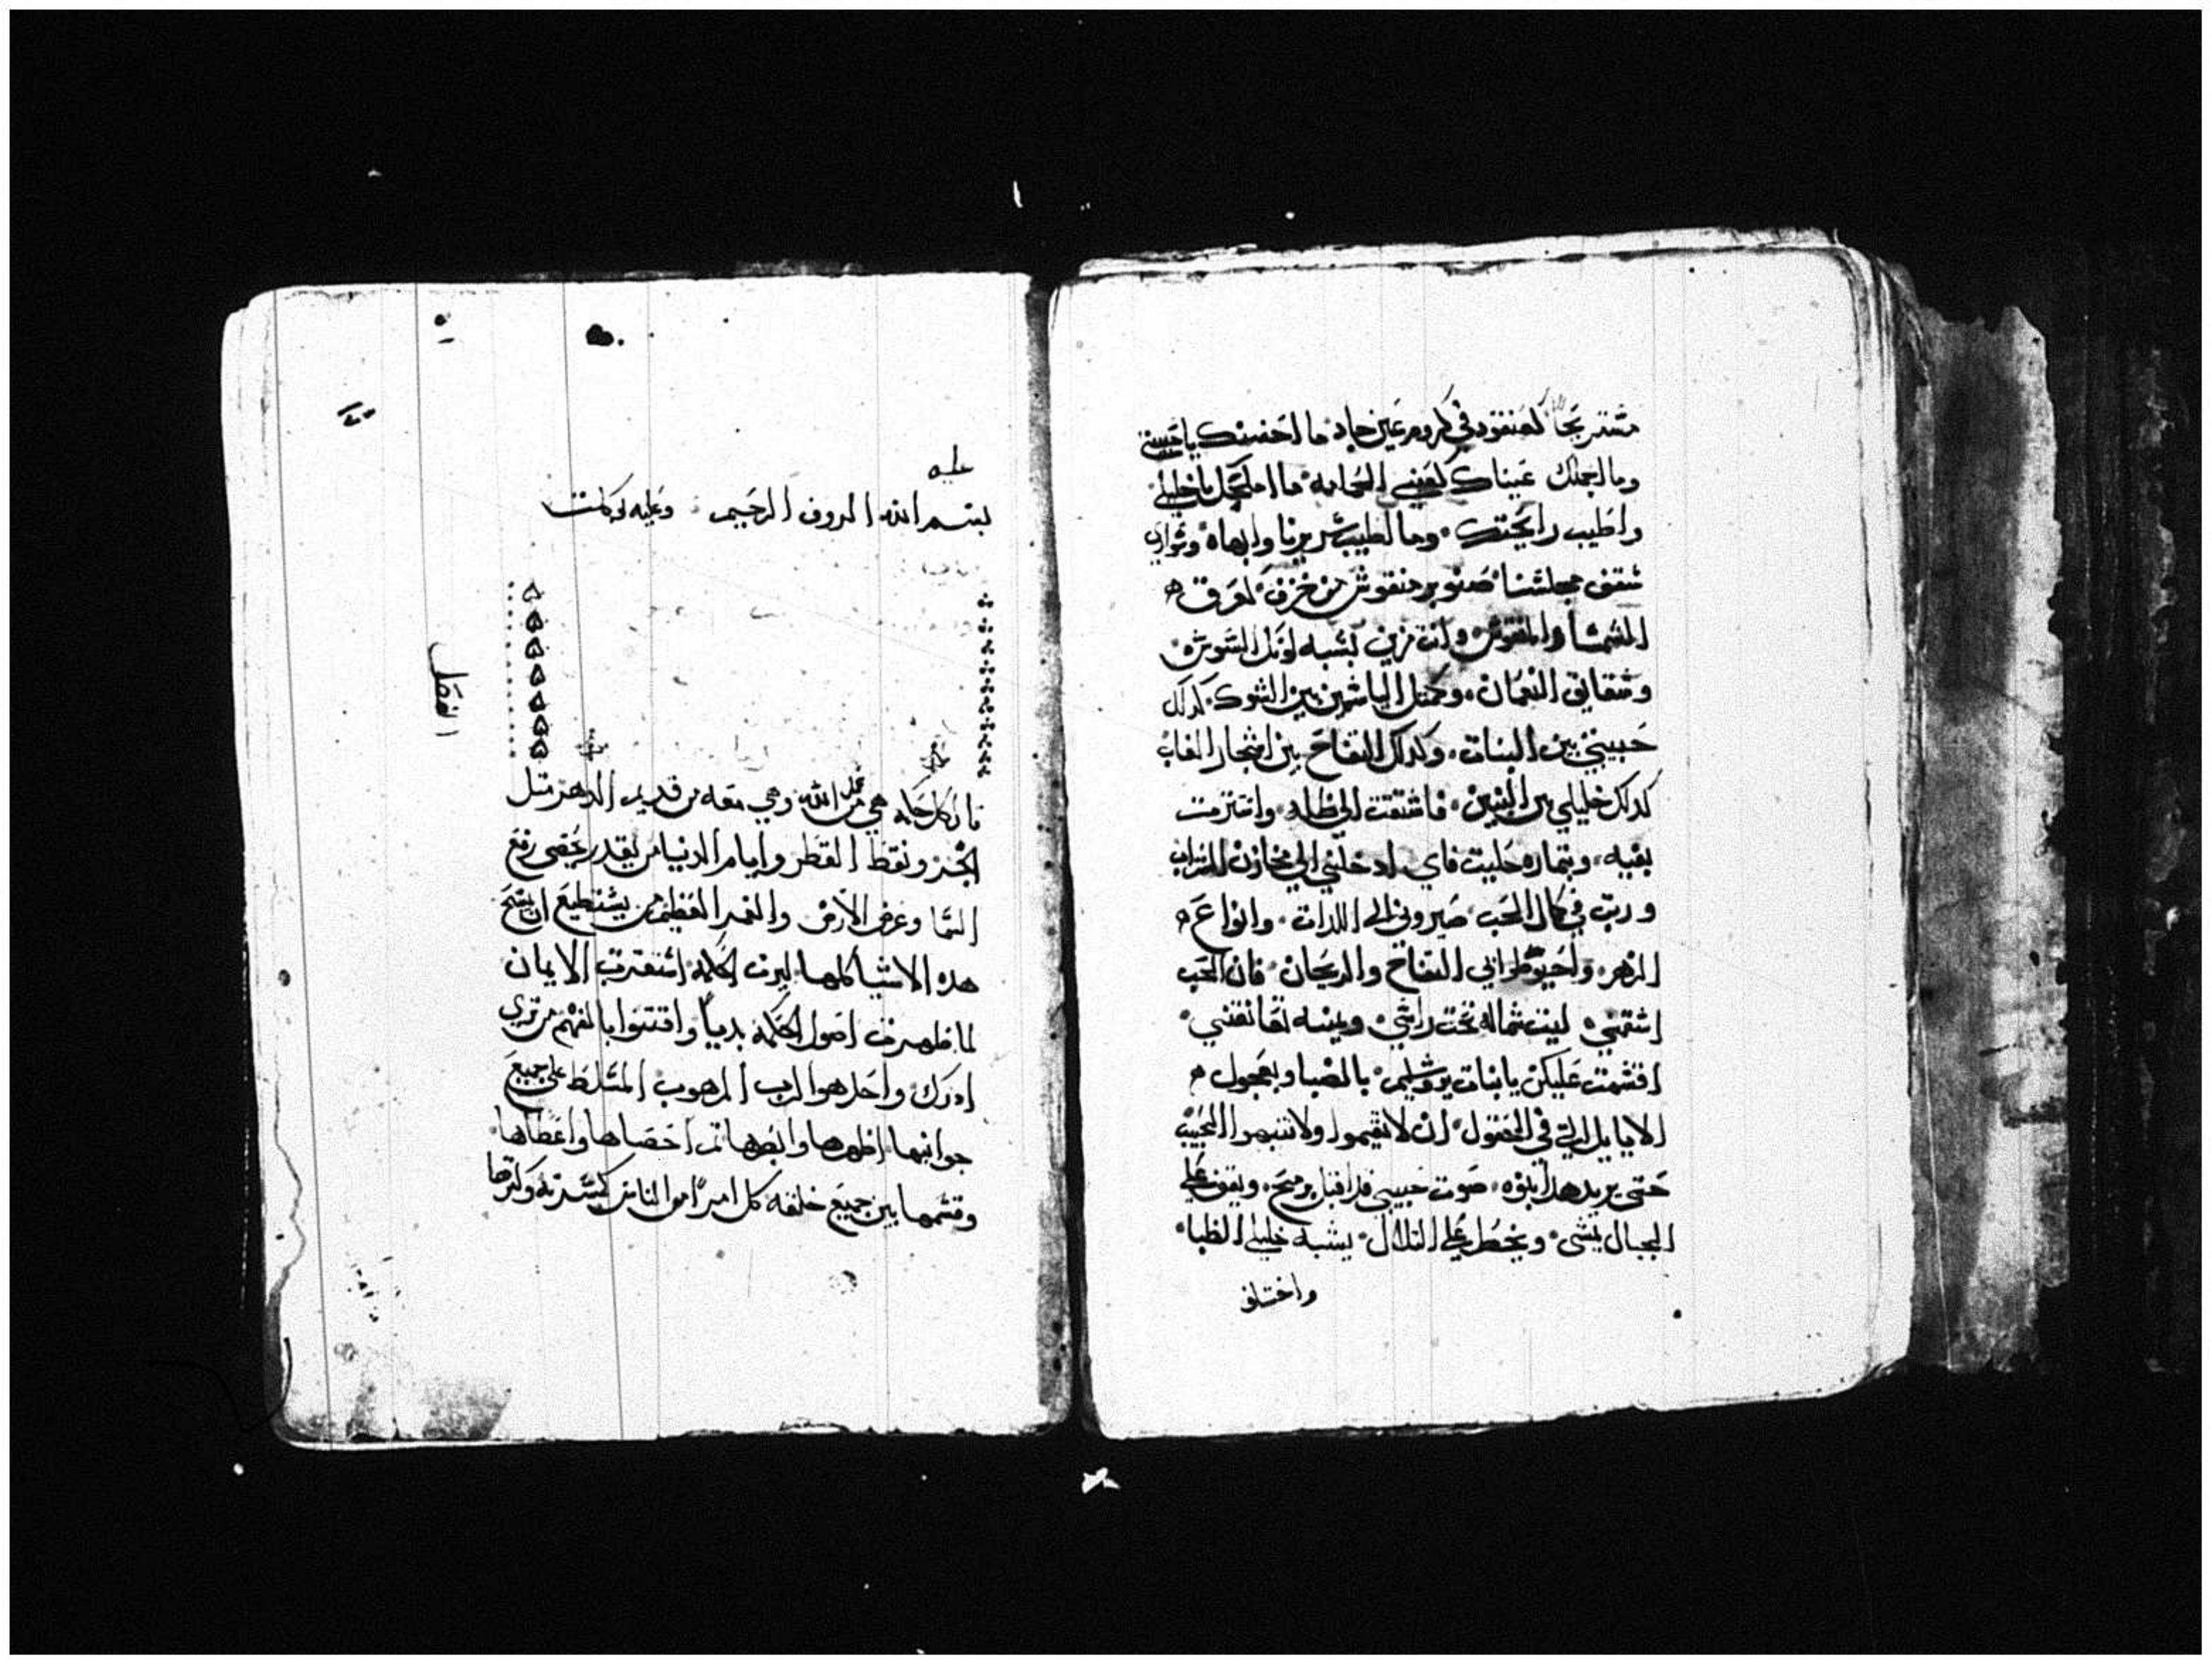 مستريحًا كعنقود في كروم عين جاد ما احسنك يا حبيبتي
وما اجملك عيناك كعيني الحمامة ما اجملك يا خليلي
واطيب رايحتك وما اطيب سريرنا وابهاه وسواري
سقف مجلسنا صنوبر منقوش من خزف لعرق
الشمسا والنقوش وانت مزين بشبه لونك السوسن
وشقايق النعمان وكمثل الياسمين بين الشوك كدلك
حبيبتي بين البنات وكدلك التفاح بين اشجار الغاب
كدلك خليلي بين البنين فاشتقت الي ظله واستزمت
بفيه وبثماره حليت فاي ادخلني الي مخازن الشراب
ورتب في كال الحب صيروني الي اللدات وانواع
الزهر واحيوطوا بي التفاح والريحان فان الحب
اسقمني ليت شماله تحت راسي ويمينه تعانقني
اقسمت عليكن يا بنات يروشليم بالصبا وبعجول
الايايل التي في الحقول ان لا تقيموا ولا تنبهوا الحبيب
حتى يريد هدا بهوه صوت حبيبي قد اقبل يرمح ويقف علي
الجبال يمشى ويخطي علي التلال يشبه خليلي الظبا
واختلف
عليه
بسم الله الروف الرحيم وعليه توكلت
الفصل
قال كل حكمه هي من عند الله وهي معه من قديم الدهر مثل
البحر ونقط القطر وايام الدنيا من يقدر يحصي رفع
السما وعرض الارض والغمر العظيم من يستطيع ان يمسح
هده الاشيا كلها ليرت الحكمه استعقرت الايمان
لما ظهرت اصول الحكمه بديا واقتنوا بالفهم من تري
ادرك واحد هو الرب المرهوب المتسلط علي جميع
جوانبها اظهرها وابصرها ثم احصاها واعطاها
وقسمها بين جميع خلقه كل امر امو الناس كيسرته وكترها